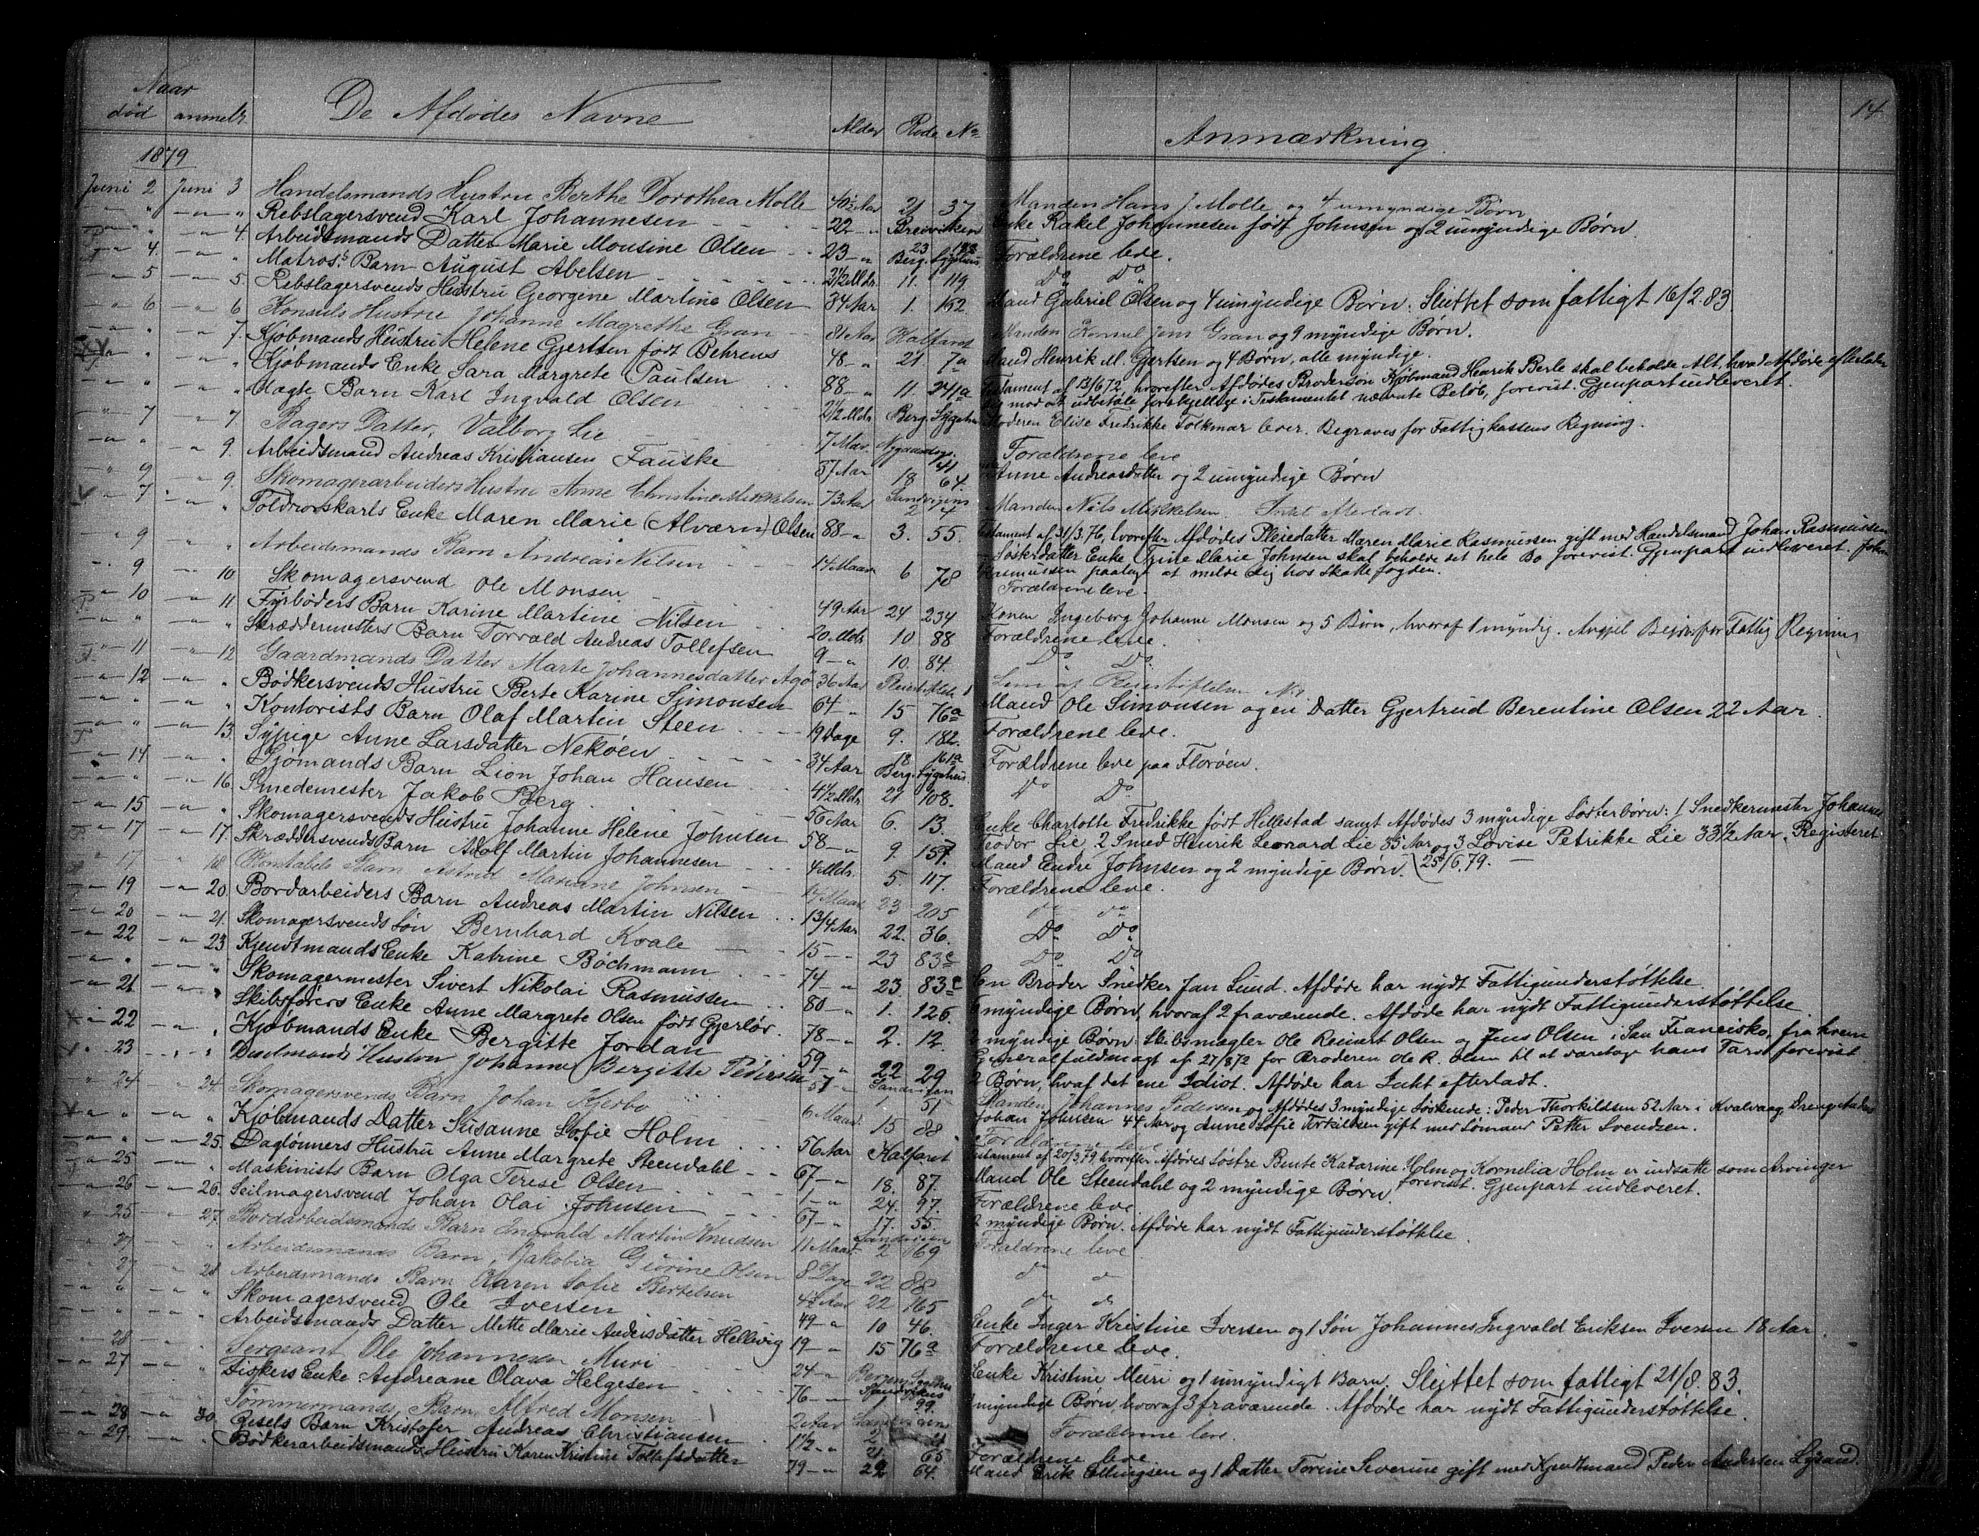 14
Naar
død anmeldt De Afdødes Navne Alder Rode No Anmærkning
1879
Juni 2 Juni 3 Handelsmands Hustru Berthe Dorothea Molle 40½ Aar 21 37 Manden Hans J. Molle og 4 umyndige Børn
" " Rebslagersvend Karl Johannesen 22 " Breiviken Enke Rakel Johannesen født Johnsen og 2 umyndige Børn
" 4. Arbeidsmands Datter Marie Monsine Olsen 23 " Berg. Sygehus Forældrene leve.
4. " Matros's Barn August Abelsen 2½ Mdr. 11. 119. Do Do
5 5. Rebslagersvends Hustru Georgine Martine Olsen 34 Aar 1. 152. Mand Gabriel Olsen og 4 umyndige Børn. Sluttet som fattigt 16/2. 83.
6 6 Konsuls Hustru Johanne Magrethe Gran 81 Aar Kalfaret Manden Konsul Jens Gran og 9 myndige Børn.
" 7. Kjøbmands Hustru Helene Gjertsen født Behrens 48 " 21 7a Mand Henrik M. Gjertsen og 4 Børn, alle myndige.
" " Kjøbmands Enke Sara Margrete Paulsen 88 " 11 241a Testament af 13/6 72, hvorefter Afdødes Brodersøn Kjøbmand Henrik Berle skal beholde Alt, hvad Afdøde efterlader
mod at udbetale forskjellige i Testamentet nævnte Beløb, forevist. Gjenpart indleveret.
" " Karl Ingvald Olsen 2½ Mdr. Berg. Sygehus Moderen Elise Fredrikke Folkmar lever. Begraves for Fattigkassens Regning.
7 7 Bagers Datter, Valborg Lie 7 Forældrene leve
" 9. Arbeidsmand Andreas Kristiansen Fauske 57 Aar 18 64. Anne Andreasdatter og 2 umyndige Børn
9 9. Skomagerarbeiders Hustru Anne Christine Mikkelsen 73 Aar Sandvigen 2 4 Manden Nils Mikkelsen.
7 " Toldrorskarls Enke Maren Marie (Alværn) Olsen 88 " 3. 55. Testament af 31/3. 76, hvorefter Afdødes Pleiedatter Maren Marie Rasmussen gift med Handelsmand Johan Rasmussen
Søsterdatter Enke Marie Johnsen skal beholde det hele Bo forevist. Gjenpart indleveret.
Rasmussen paalagt at melde sig hos Skattefogden.
9 " Arbeidsmands Barn Andreas Nilsen 14 Maan 6 78 Forældrene leve.
9 10 Skomagersvend Ole Monsen 49 Aar 24 234 Konen Ingeborg Johanne Monsen og 5 Børn, hvoraf 1 myndig.
10 11 Fyrbøders Barn Karine Martine Nilsen 20 Mdr. 10 88 Forældrene leve.
" " Skræddermesters Barn Torvald Andreas Tollefsen 9 " 10. 84. Do Do
11 12 Gaardmands Datter Marte Johannesdatter 36 Aar Pleiestiftelse 1 Lem af Pleiestiftelsen No 1
12 " Bødkersvends Hustru Berte Karine Simonsen 64 " 15 76a Mand Ole Simonsen og en Datter Gjertrud Berentine Olsen 22 Aar.
" " Kontorists Barn Olaf Marten Steen 19 Dage 9. 182. Forældrene leve.
" 13. Sypige Anne Larsdatter Nekøen 34 Aar Berg. Sygehus. Forældrene leve paa Florøen.
14 " Sjømands Barn Lion Johan Hansen 4½ Mdr. 21 108. Do Do
" 16. Smedemester Jakob Berg 56 Aar 6. 13. Enke Charlotte Fredrikke født Hillestad samt Afdødes 3 myndige Søsterbørn: 1 Snedkermester Johannes
Teodor Lie, 2 Smed Henrik Leonard Lie 35 Aar og 3 Lovise Petrikke Lie 33½ Aar. Registeret
15 " Skomagersvends Hustru Johanne Helene Johnsen 58 " 9. 157. Mand Endre Johnsen og 2 myndige Børn. 25/6. 79.
17 17. Skræddersvends Barn Adolf Martin Johannesen 4 Mdr. 5. 117. Forældrene leve.
17 18. Konstabels Barn Astrid Mariane Johnsen 17 Maan 23 205 do do
19 20. Bordarbeiders Barn Andreas Martin Nilsen 1 3/4 Aar 22. 36. Do Do
20 21. Skomagersvends Søn Bernhard Kvale 15 " 23 83c Do Do
22 23 Kjendtmands Enke Katrine Bøchmann 74 " 23. 83c En Broder Snedker Jan Lund. Afdøde har nydt Fattigunderstøttelse.
" " Skomagermester Sivert Nikolai Rasmussen 80 " 1. 126. 5 myndige Børn, hvoraf 2 fraværende. Afdøde har nydt Fattigunderstøttelse.
21 " Skibsførers Enke Anne Margrete Olsen født Gjerløv. 78 " 2. 12. 2 myndige Børn: Skibsmægler Ole Reinert Olsen og Jens Olsen i San Francisko, fra hvem
Generalfuldmagt af 27/8 72 for Broderen Ole R. Olsen til at varetage hans Tarv forevist
22 " Kjøbmands Enke Bergitte Jordan 59 " 22 29 2 Børn, hvoraf det ene Idiot. Afdøde har Intet efterladt.
23 " Hustru Johanne Bergitte Pedersen 57 " Sandviken 1 51 Manden Johannes Pedersen og Afdødes 3 myndige Søskende: Peder Thorkildsen 52 Aar i Kvalvaag,
Johan Johnsen 44 Aar og Anne Sofie Torkildsen gift med Sømand Petter Svendsen.
24 24. Skomagersvends Barn Johan Kjerbo 6 Maan 15 88 Forældrene leve
" " Kjøbmands Datter Susanne Sofie Holm 56 Aar Kalfaret Testament af 20/3. 79 hvorefter Afdødes Søstre Bente Katarine Holm og Kornelia Holm er indsatte som Arvinger
forevist. Gjenpart indleveret.
" 25. Daglønners Hustru Anne Margrete Steendahl 67 " 18. 87. Mand Ole Steendahl og 2 myndige Børn.
25 " Maskinists Barn Olga Terese Olsen 1 " 24. 97. Forældrene leve
26 26. Seilmagersvend Johan Olai Johnsen 67 " 17. 55. 2 myndige Børn. Afdøde har nydt Fattigunderstøttelse.
25 27. Bordarbeidsmands Barn Ingvald Martin Knudsen 11 Maan Sandviken 2 169 Forældrene leve
27 " Arbeidsmands Barn Jakobia Giørine Olsen 8 Dage 22 88 do do
27 28 Arbeidsmands Barn Karen Sofie Bertelsen 22 165 do do
" " Skomagersvend Ole Iversen 49 " 10 46. Enke Inger Kristine Iversen og 1 Søn Johannes Ingvald Eriksen Iversen 18 Aar.
" " Arbeidsmands Datter Mette Marie Andersdatter Hellvig 19 " 15 76a Forældrene leve.
28 " Sergeant Ole Johannesen Muri 24 " Enke Kristine Muri og 1 umyndigt Barn. Sluttet som fattigt 21/8. 83.
27 " Fiskers Enke Andreane Olava Helgesen 76 " Sandvikens 99. myndige Børn, hvoraf 3 fraværende. Afdøde har nydt Fattigunderstøttelse.
" " Tømmermands Barn Alfred Monsen 2 Aar Sandviken 2 21 Forældrene leve.
28 30. Barn Kristofer Andreas Christiansen 1½ " 21 65 Forældrene leve
29. " Bødkerarbeidsmands Hustru Karen Kristine Tollefsdatter 79 " 22 64. Mand Erik Ellingsen og 1 Datter Torine Severine gift med Kjendtmand Peder Andersen Lysand.